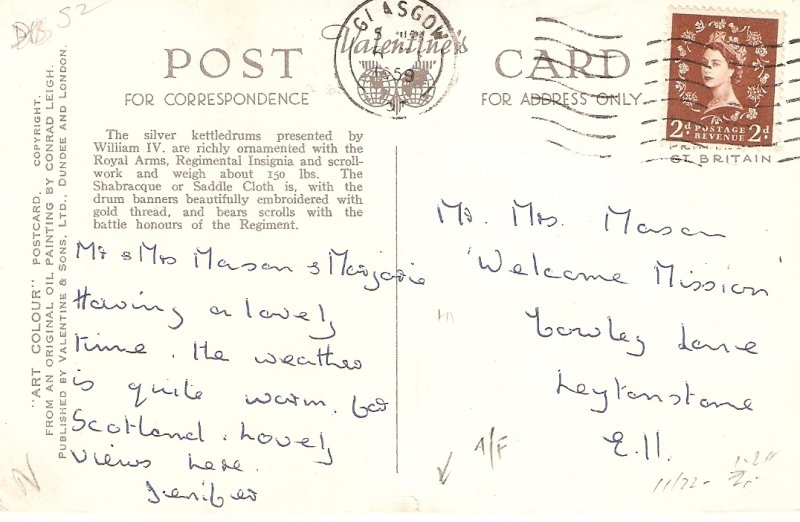 52
GLASGOW
1959
Valentine's
POST CARD
FOR CORRESPONDENCE
FOR ADDRESS ONLY
2d POSTAGE REVENUE 2d
GT. BRITAIN
"ART COLOUR" POSTCARD. COPYRIGHT.
FROM AN ORIGINAL OIL PAINTING BY CONRAD LEIGH.
PUBLISHED BY VALENTINE & SONS, LTD., DUNDEE AND LONDON.
The silver kettledrums presented by
William IV. are richly ornamented with the
Royal Arms, Regimental Insignia and scroll-
work and weigh about 150 lbs. The
Shabracque or Saddle Cloth is, with the
drum banners beautifully embroidered with
gold thread, and bears scrolls with the
battle honours of the Regiment.
Mr & Mrs Mason & Marjorie
Having a lovely
time. The weather
is quite warm, for
Scotland. Lovely
views here.
Jenifer
Mr. Mrs. Mason
'Welcome Mission'
Cowley Lane
Leytonstone
E.11.
A/F
11/22-
N